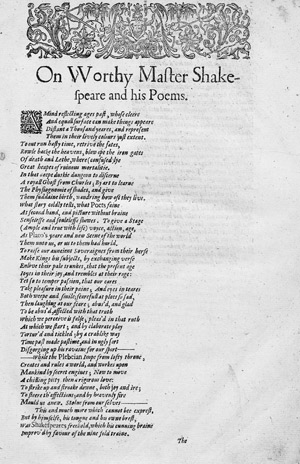 On Worthy Maſter Shake-
ſpeare and his Poems.
A Mind reflecting ages paſt, whoſe cleere
And equall ſurface can make things appeare
Diſtant a Thouſand yeares, and repreſent
Them in their lively colours juſt extent.
To out run haſty time, retrive the fates,
Rowle backe the heavens, blow ope the iron gates
Of death and Lethe, where (confuſed) lye
Great heapes of ruinous mortalitie.
In that deepe duskie dungeon to diſcerne
A royall Ghoſt from Churles; By art to learne
The Phyſiognomie of ſhades, and give
Them ſuddaine birth, wondring how oft they live.
What ſtory coldly tells, what Poets faine
At ſecond hand, and picture without braine
Senſeleſſe and ſouleleſſe ſhowes. To give a Stage
(Ample and true with life) voyce, action, age,
As Plato's yeare and new Scene of the world
Them unto us, or us to them had hurld.
To raiſe our auncient Soveraignes from their herſe
Make Kings his ſubjects, by exchanging verſe
Enlive their pale trunkes, that the preſent age
Ioyes in their joy, and trembles at their rage:
Yet ſo to temper paſſion, that our eares
Take pleaſure in their paine; And eyes in teares
Both weepe and ſmile; fearefull at plots ſo ſad,
Then laughing at our feare; abus'd, and glad
To be abus'd, affected with that truth
Which we perceive is falſe; pleas'd in that ruth
At which we ſtart; and by elaborate play
Tortur'd and tickled; by a crablike way
Time paſt made paſtime, and in ugly ſort
Diſgorging up his ravaine for our ſport
While the Plebeian Impe from lofty throne,
Creates and rules a world, and workes upon
Mankind by ſecret engines; Now to move
A chilling pitty, then a rigorous love:
To ſtrike up and ſtroake downe, both joy and ire;
To ſteere th'affections; and by heavenly fire
Mould us anew. Stolne from our ſelves
This and much more which cannot bee expreſt,
But by himſelfe, his tongue and his owne breſt,
Was Shakeſpeares freehold, which his cunning braine
Improv'd by favour of the nine fold traine.
The